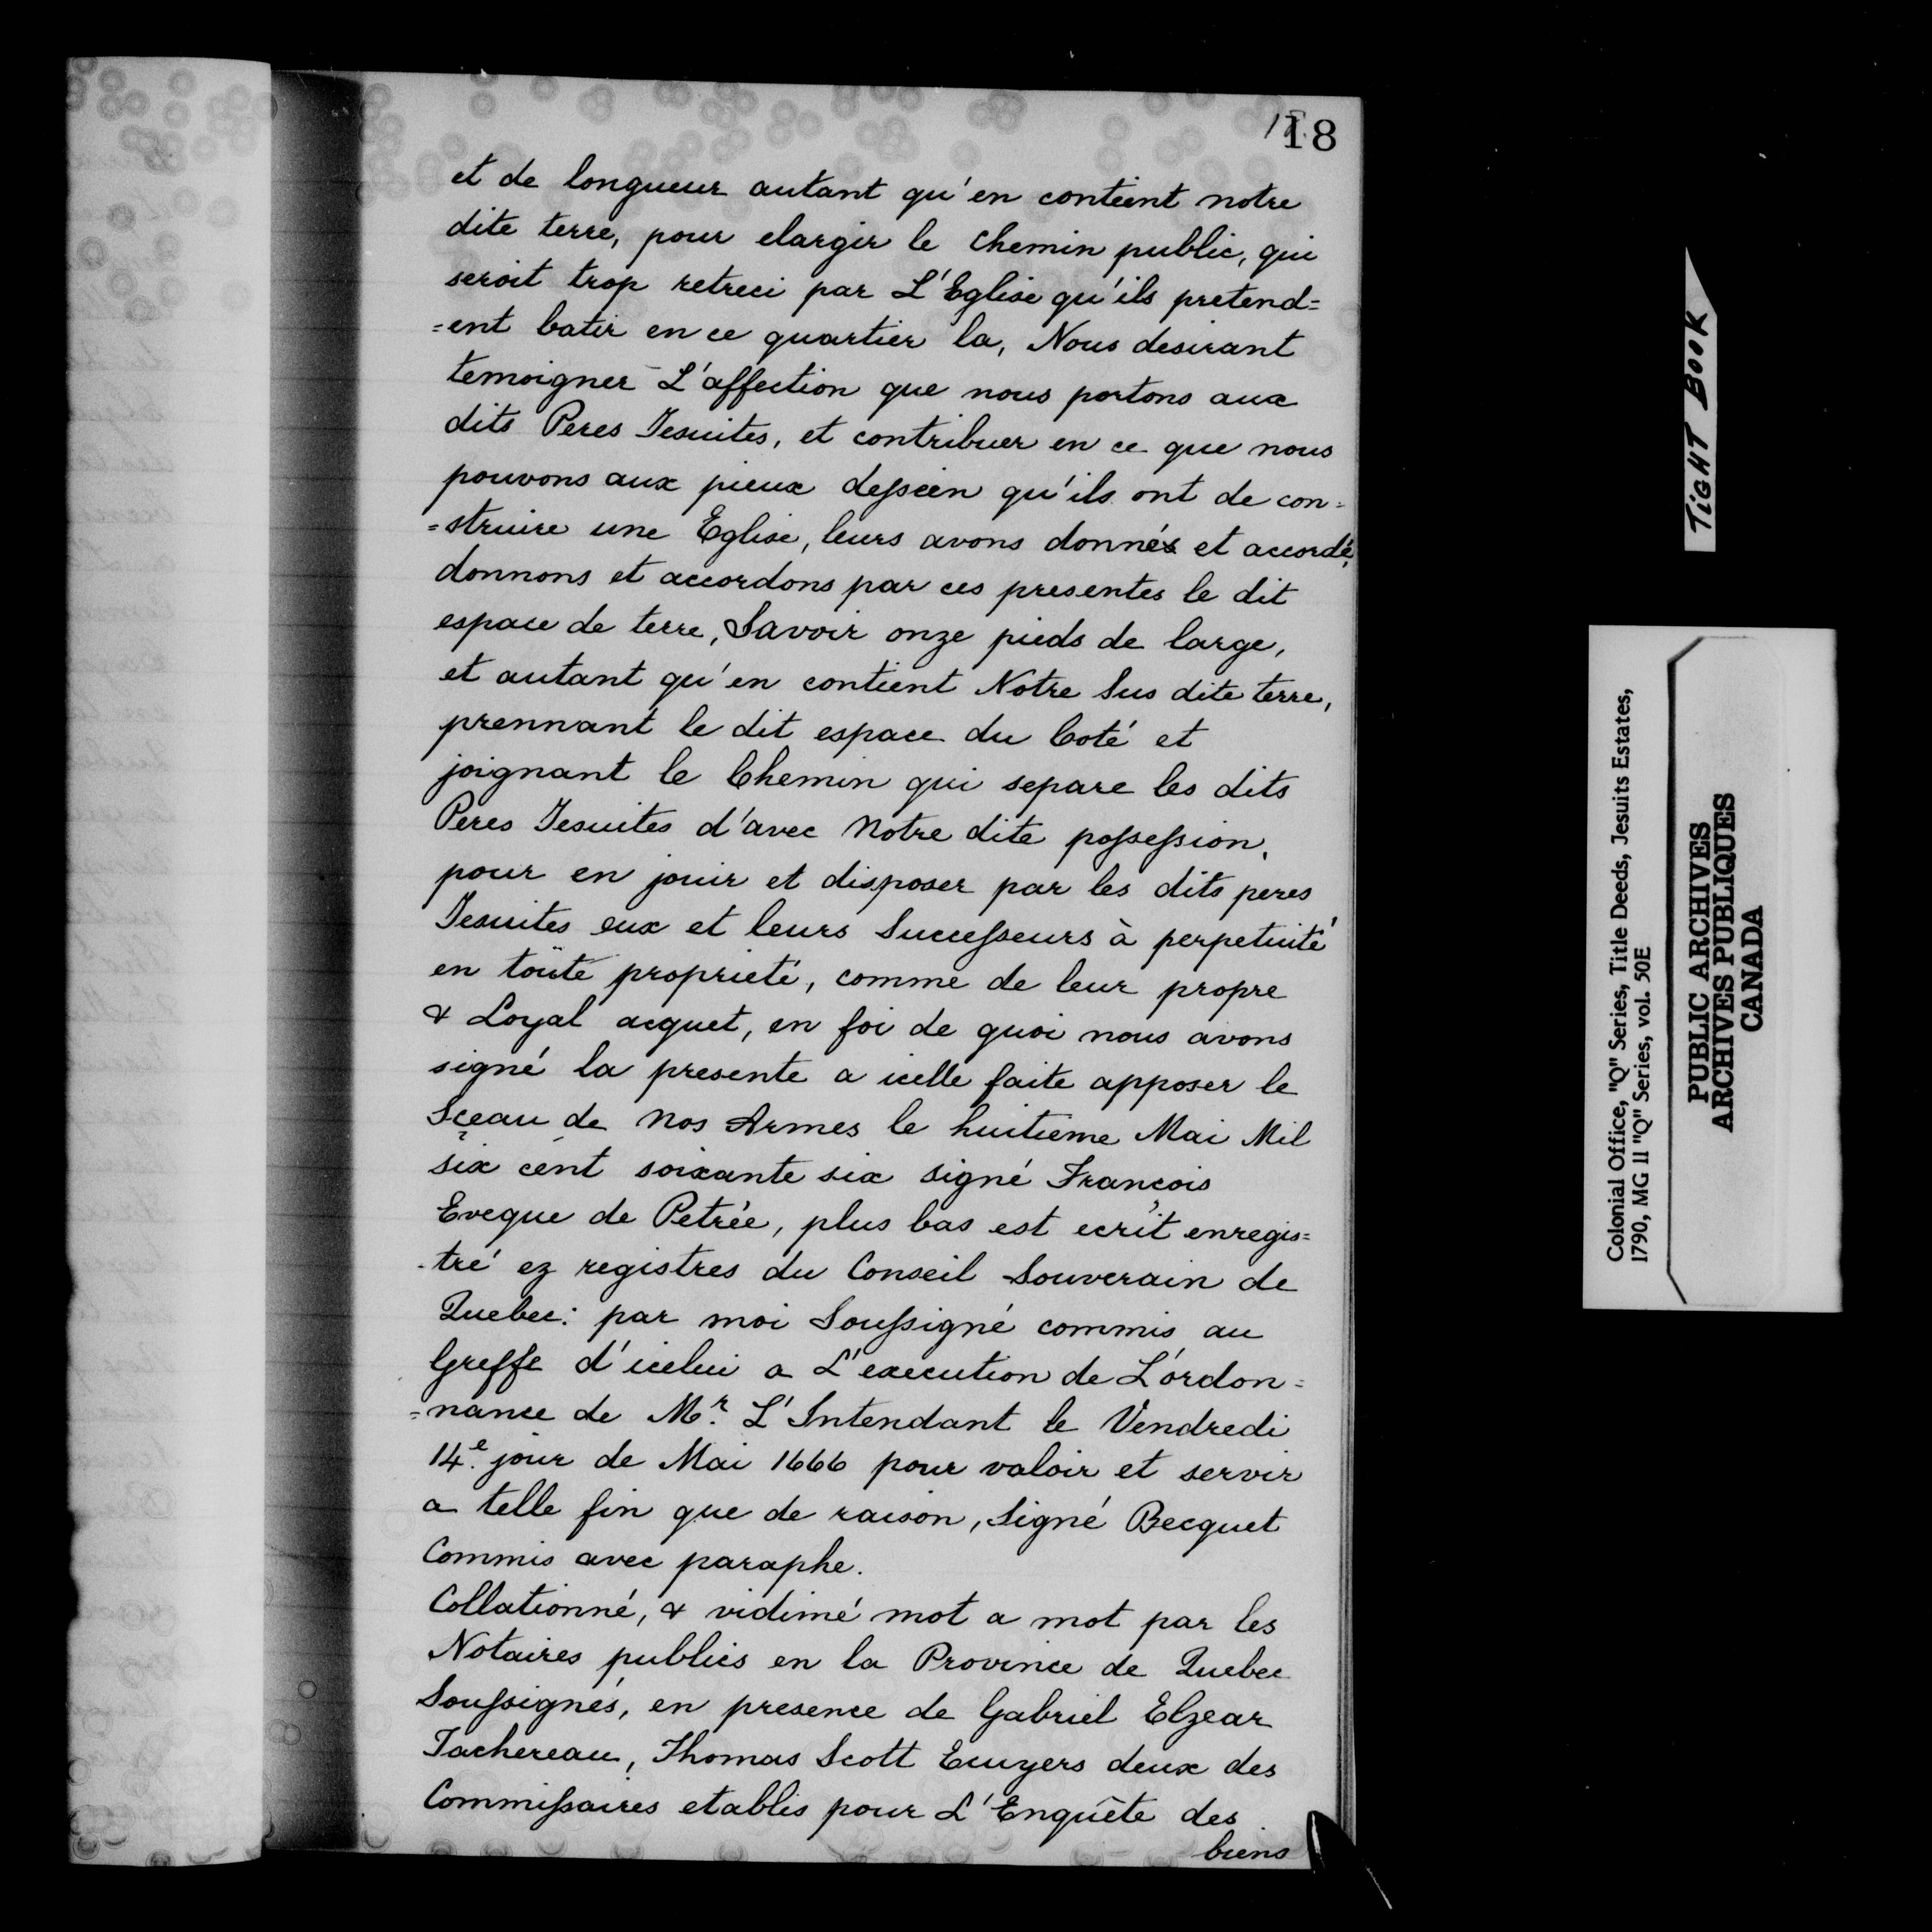 18
et de longueur autant qu'en contient notre
dite terre, pour elargir le chemin public, qui
seroit trop retreci par L'Eglise qu'ils pretend=
=ent batir en ce quartier la, Nous desirant
temoigner L'affection que nous portons aux
dits Peres Jesuites, et contribuer en ce que nous
pouvons aux pieux deſsein qu'ils ont de con=
=struire une Eglise, leurs avons donnés et accordé,
donnons et accordons par ces presentes le dit
espace de terre, Savoir onze pieds de large,
et autant qu'en contient Notre Sus dite terre,
prennant le dit espace du Coté et
joignant le Chemin qui separe les dits
Peres Jesuites d'avec Notre dite poſseſsion,
pour en jouir et disposer par les dits peres
Jesuites eux et leurs Succeſseurs à perpetuité
en toute proprieté, comme de leur propre
& Loyal acquet, en foi de quoi nous avons
signé la presente a icelle faite apposer le
Sçeau de Nos Armes le huitieme Mai Mil
six cent soixante six signé François
Eveque de Petrée, plus bas est ecrit enregis=
-tré ez registres du Conseil Souverain de
Quebec: par moi Souſsigné commis au
Greffe d'icelui a L'execution de L'ordon=
=nance de Mr. L'Intendant le Vendredi
14e. jour de Mai 1666 pour valoir et servir
a telle fin que de raison, Signé Becquet
Commis avec paraphe.
Collationné, & vidimé mot a mot par les
Notaires publics en la Province de Quebec
Souſsignés, en presence de Gabriel Elzear
Tachereau, Thomas Scott Ecuyers deux des
Commiſsaires etablis pour L'Enquête des
biens
TIGHT BOOK
Colonial Office, "Q" Series, Title Deeds, Jesuits Estates,
1790, MG 11 "Q" Series, vol. 50E
PUBLIC ARCHIVES
ARCHIVES PUBLIQUES
CANADA